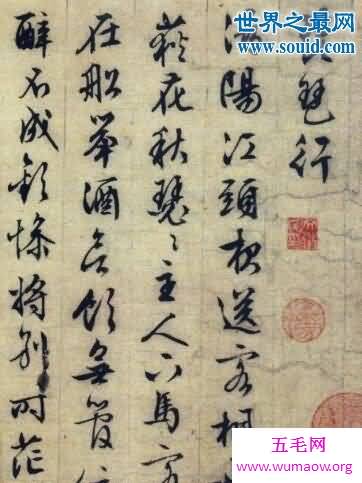 世界之最网
www.souid.com
琶行
陽江頭夜送客楓
荻花秋瑟〻主人下馬客
在船舉酒欲飲無管
醉不成歡慘將別時茫
五毛网
www.wumaow.org